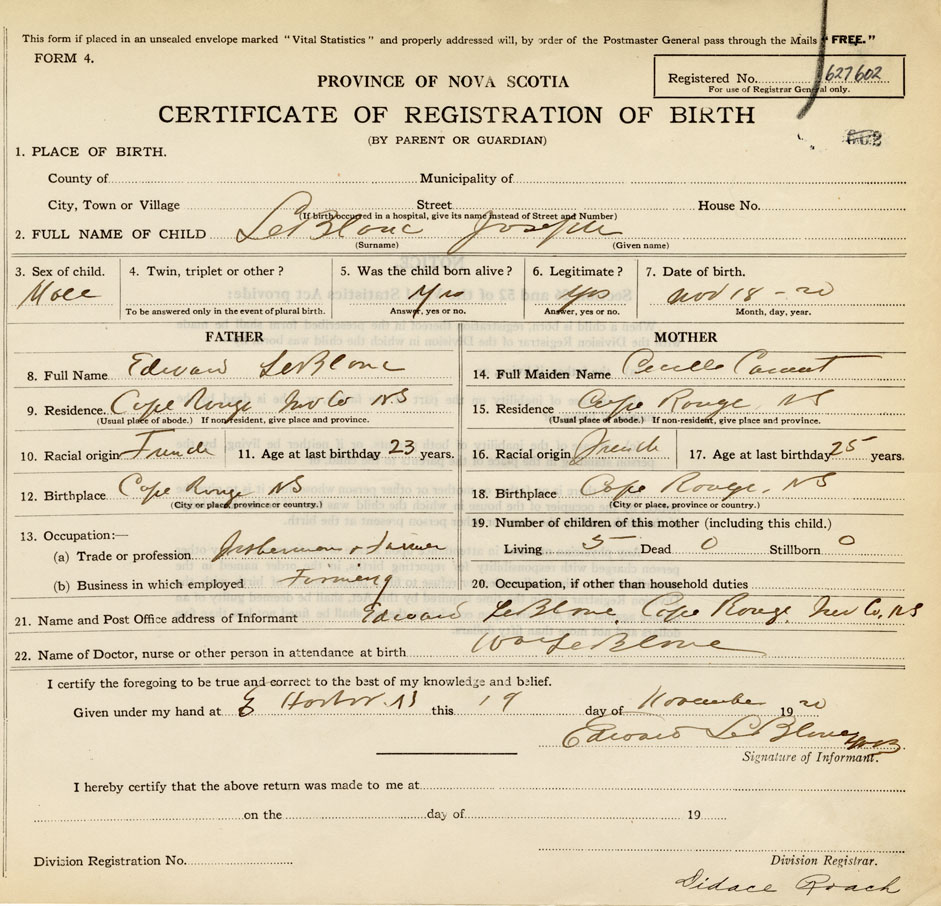 This form if placed in an unsealed envelope marked "Vital Statistics" and properly addressed will, by order of the Postmaster General pass through the Mails "FREE."
FORM 4.
PROVINCE OF NOVA SCOTIA
Registered No. 627602
For use of Registrar General only.
CERTIFICATE OF REGISTRATION OF BIRTH
(BY PARENT OR GUARDIAN)
602
1. PLACE OF BIRTH.
County of Municipality of
City, Town or Village Street House No.
(If birth occurred in a hospital, give its name instead of Street and Number)
2. FULL NAME OF CHILD LeBlanc Joseph
(Surname) (Given name)
3. Sex of child. 4. Twin, triplet or other? 5. Was the child born alive? 6. Legitimate? 7. Date of birth.
Male Yes yes Nov 18 - 20
To be answered only in the event of plural birth. Answer, yes or no. Answer, yes or no. Month, day, year.
FATHER MOTHER
8. Full Name Edward LeBlanc 14. Full Maiden Name
9. Residence. Cape Rouge Inv Co NS 15. Residence Cape Rouge, NS
(Usual place of abode.) If non-resident, give place and province. (Usual place of abode.) If non-resident, give place and province.
10. Racial origin French 11. Age at last birthday 23 years. 16. Racial origin French 17. Age at last birthday 25 years.
12. Birthplace Cape Rouge NS 18. Birthplace Cape Rouge, NS
(City or place, province or country.) (City or place, province or country.)
13. Occupation:— 19. Number of children of this mother (including this child.)
(a) Trade or profession. Fisherman & Farmer Living 5 Dead 0 Stillborn 0
(b) Business in which employed Farming 20. Occupation, if other than household duties
21. Name and Post Office address of Informant Edward LeBlanc, Cape Rouge, Inv Co, NS
22. Name of Doctor, nurse or other person in attendance at birth LeBlanc
I certify the foregoing to be true and correct to the best of my knowledge and belief.
Given under my hand at E Harbor NS this 19 day of November 1920
Edward LeBlanc
Signature of Informant.
I hereby certify that the above return was made to me at
on the day of 19
Division Registration No.
Division Registrar.
Didace Roach